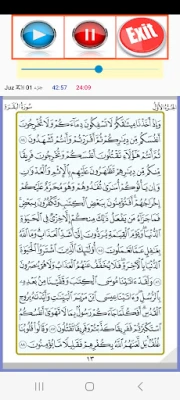 Exit
Juz الجزء 01 42:57 24:09
سُورَةُ البَقَرَةِ الجُزْءُ الأَوَّلُ
وَإِذْ أَخَذْنَا مِيثَٰقَكُمْ لَا تَسْفِكُونَ دِمَآءَكُمْ وَلَا تُخْرِجُونَ
أَنفُسَكُم مِّن دِيَٰرِكُمْ ثُمَّ أَقْرَرْتُمْ وَأَنتُمْ تَشْهَدُونَ ٨٤
ثُمَّ أَنتُمْ هَٰٓؤُلَآءِ تَقْتُلُونَ أَنفُسَكُمْ وَتُخْرِجُونَ فَرِيقًا
مِّنكُم مِّن دِيَٰرِهِمْ تَظَٰهَرُونَ عَلَيْهِم بِٱلْإِثْمِ وَٱلْعُدْوَٰنِ
وَإِن يَأْتُوكُمْ أُسَٰرَىٰ تُفَٰدُوهُمْ وَهُوَ مُحَرَّمٌ عَلَيْكُمْ
إِخْرَاجُهُمْ أَفَتُؤْمِنُونَ بِبَعْضِ ٱلْكِتَٰبِ وَتَكْفُرُونَ بِبَعْضٍ
فَمَا جَزَآءُ مَن يَفْعَلُ ذَٰلِكَ مِنكُمْ إِلَّا خِزْىٌ فِى ٱلْحَيَوٰةِ
ٱلدُّنْيَا وَيَوْمَ ٱلْقِيَٰمَةِ يُرَدُّونَ إِلَىٰٓ أَشَدِّ ٱلْعَذَابِ وَمَا ٱللَّهُ
بِغَٰفِلٍ عَمَّا تَعْمَلُونَ ٨٥ أُو۟لَٰٓئِكَ ٱلَّذِينَ ٱشْتَرَوُا۟ ٱلْحَيَوٰةَ
ٱلدُّنْيَا بِٱلْءَاخِرَةِ فَلَا يُخَفَّفُ عَنْهُمُ ٱلْعَذَابُ وَلَا هُمْ يُنصَرُونَ
٨٦ وَلَقَدْ ءَاتَيْنَا مُوسَى ٱلْكِتَٰبَ وَقَفَّيْنَا مِنۢ بَعْدِهِۦ
بِٱلرُّسُلِ وَءَاتَيْنَا عِيسَى ٱبْنَ مَرْيَمَ ٱلْبَيِّنَٰتِ وَأَيَّدْنَٰهُ بِرُوحِ
ٱلْقُدُسِ أَفَكُلَّمَا جَآءَكُمْ رَسُولٌۢ بِمَا لَا تَهْوَىٰٓ أَنفُسُكُمُ
ٱسْتَكْبَرْتُمْ فَفَرِيقًا كَذَّبْتُمْ وَفَرِيقًا تَقْتُلُونَ ٨٧ وَقَالُوا۟ قُلُوبُنَا
غُلْفٌۢ بَل لَّعَنَهُمُ ٱللَّهُ بِكُفْرِهِمْ فَقَلِيلًا مَّا يُؤْمِنُونَ ٨٨
١٣